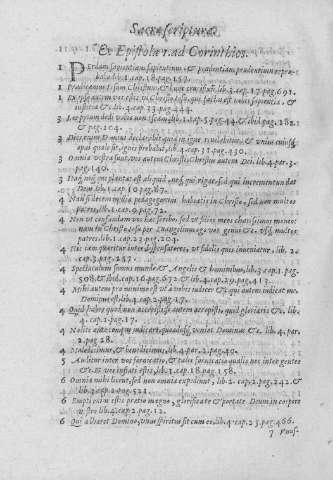 Sacræ scripturæ
Ex Epistola 1. ad Corinthios.
1 Perdam sapientiam sapientium, & prudentiam prudentium reprobabo lib.1.cap.18.pag.153.
1 Prædicamus Iesum Christum, & hunc crucifixum lib.3.cap.17.pag.691.
1 Ex ipso autem vos estis in Christo Iesu, qui factus est nobis sapientia, & iustitia &c. lib.4.cap.32.pag.430.
3 & pag.204.
3 Dies enim Domini declarabit quia in igne revelabitur, & vniuscuiusque opus quale sit, ignis probabit lib.4.cap.37.pag.450.
3 Omnia vestra sunt, vos autem Christi, Christus autem Dei. lib.4.par.3.
pag.140.
3 Neque qui plantat est aliquid, neque qui rigat, sed qui incrementum dat
Deus lib.1.cap.10.pag.87.
4 Nam si decem millia pædagogorum habeatis in Christo, sed non multos
patres, lib.1.cap.9.pag.72.
4 Non vt confundam vos hæc scribo, sed vt filios meos charissimos moneo
nam in Christo Iesu per Euangelium ego vos genui &c. vsque multos
patres lib.1.cap.23.pag.204.
4 Hic iam quæritur inter dispensatores, vt fidelis quis inveniatur. lib.2.
cap.3.pag.257.
4 Spectaculum sumus mundo, & Angelis & hominibus, lib.3.cap.1.pag.
508. & ibid.cap.16.pag.673. & lib.4.cap.29.pag.413.
4 Mihi autem pro minimo est vt a vobis iudicer &c. qui autem iudicat me
Dominus est lib.4.cap.2.pag.17.
4 Quid habes quod non accepisti, si autem accepisti, quid gloriaris, &c. lib.
4.cap.2.pag.17.
4 Nolite ante tempus iudicare, quoadusque veniat Dominus &c. lib.4.par.
2.pag.28.
4 Maledicimur, & benedicimus, lib.4.par.2.pag.40.
5 Auditur inter vos fornicatio, & talis fornicatio qualis nec inter gentes
&c. & vos inflati estis, lib.1.cap.18.pag.158.
6 Omnia mihi licent, sed non omnia expediunt, lib.2.cap.2.pag.242. &
lib.3.cap.1.pag.521.
6 Empti enim estis pretio magno, glorificate & portate Deum in corpore
vestro lib.4.cap.2.pag.12.
6 Qui adhæret Domino, vnus spiritus est cum eo, lib.4.cap.23.pag.466.
7 Vnus-